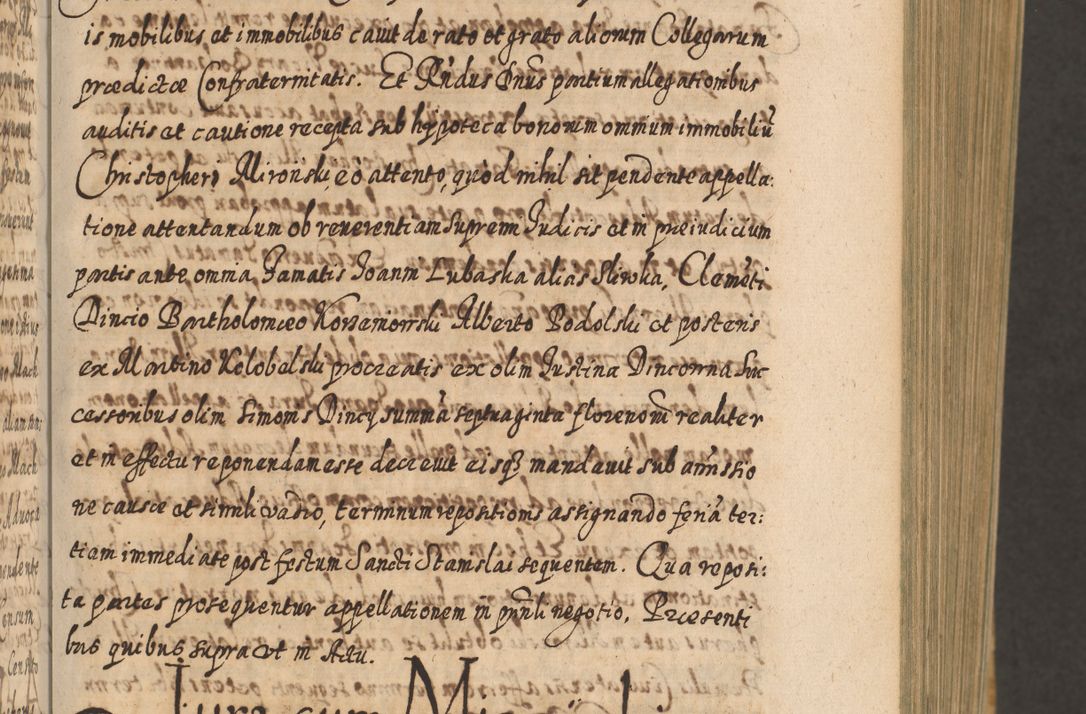 is mobilibus et immobilibus cavit de rato et grato aliorum Collegarum
prædictæ Confraternitatis. Et Rn̄dus Dn̄us partium allegationibus
auditis et cautione recepta sub hypoteca bonorum omnium immobiliū
Christopheri Mironski, eò attento, quòd nihil sit pendente appella:
tione attentandum ob reverentiam supremi Judicis et in præiudicium
partis ante omnia Famatis Joanni Lubaska alias Sliwka, Clemēti
Dincio Bartholomæo Korzeniowski Alberto Podolski et posteris
ex Martino Kolobelski procreatis ex olim Justina Dinconna suc
cessoribus olim Simonis Dincy summā septuaginta florenorū realiter
et in effectu reponendam esse decrevit eisq3 mandavit sub amissio
ne causæ et simili vadio, terminum repositionis assignando feriā ter:
tiam immediate post festum Sancti Stanislai sequentem. Qua reposi:
ta partes prosequentur appellationem in prn̄li negotio. Præsenti
bus quibus supra et in Actu.